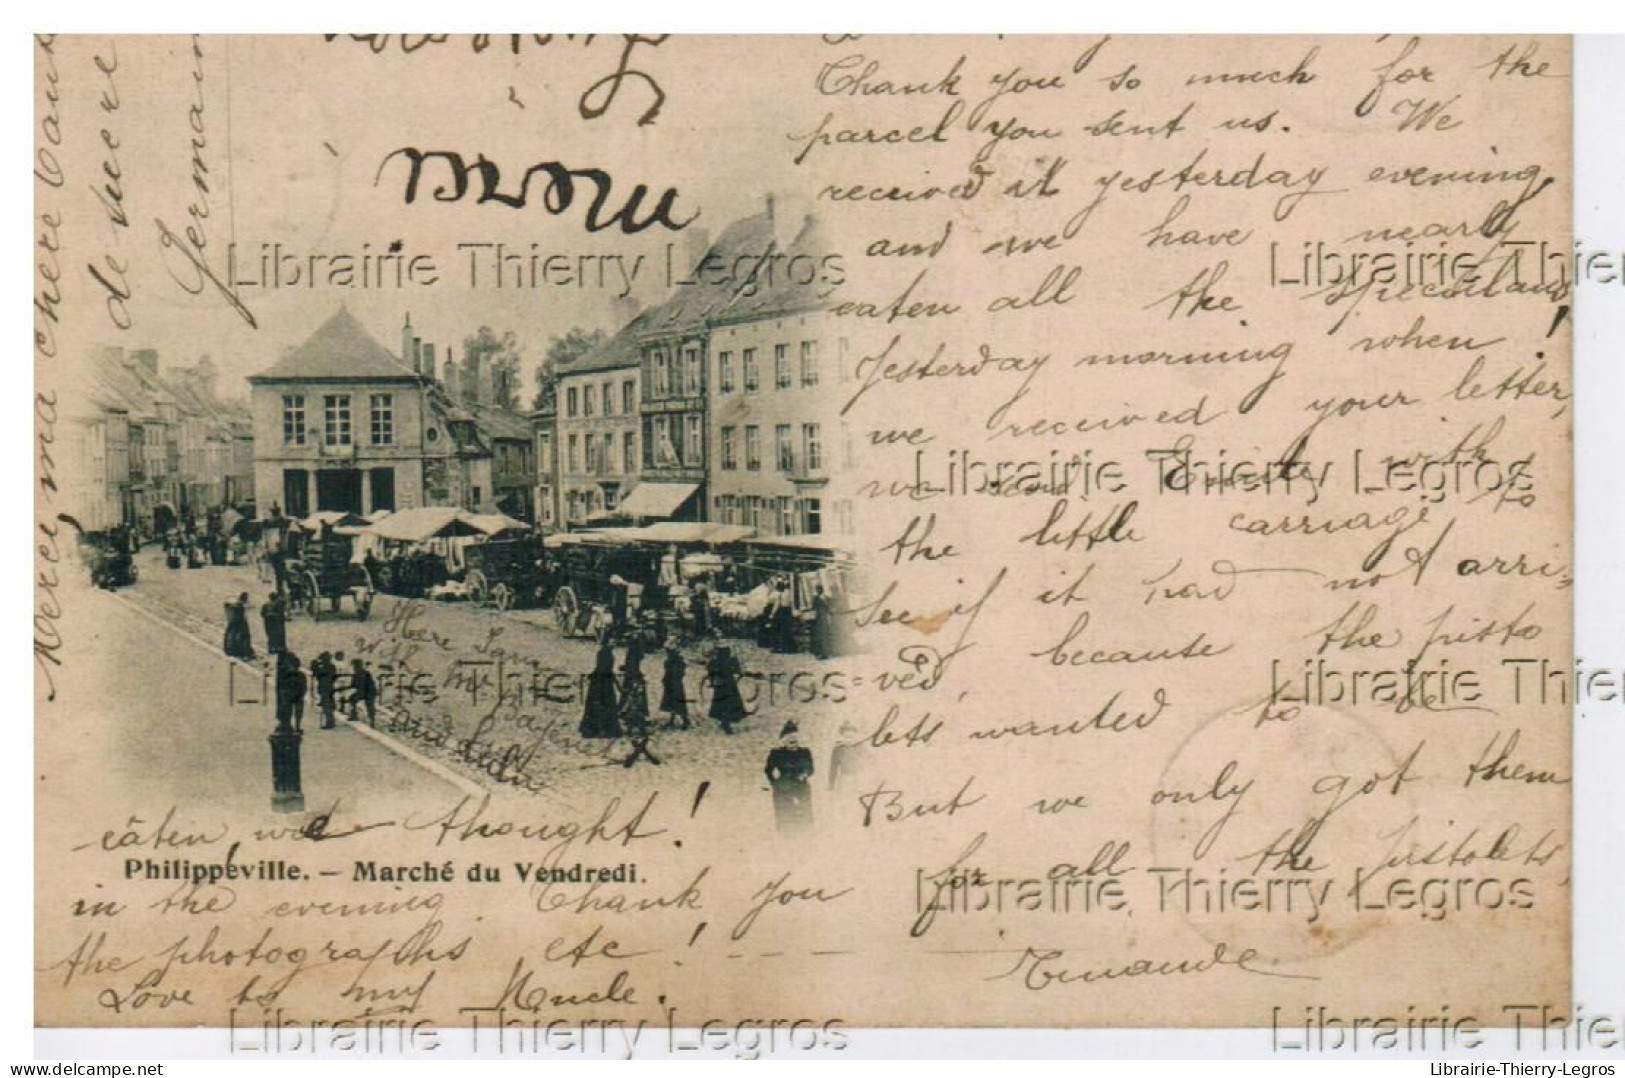 Thank you so much for the
parcel you sent us. We
received it yesterday evening,
and we have nearly
eaten all the speculaus!
Yesterday morning when
we received your letter,
we send Emile with
the little carriage to
see if it had not arri-
=ved, because the pisto
lets wanted to be
But we only got them
for all the pistolets,
eäten, we thought!
in the evening. Thank you
the photographs etc! - - -
Love to my Uncle.
Merci ma chère
de sucre
Germain
Here I am
with Mr
and
X
Philippeville. – Marché du Vendredi.
Librairie Thierry Legros
Librairie Thier
Librairie Thierry Legros
Librairie Thierry Legros
Librairie Thier
Librairie Thierry Legros
Librairie Thierry Legros
Librairie Thier
delcampe.net
Librairie-Thierry-Legros